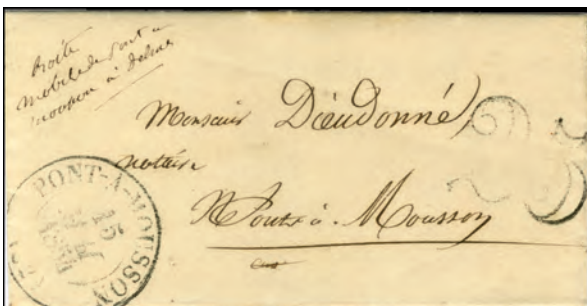 Boîte
mobile de Pont à
Mousson à Delme
Monsieur Dieudonné,
notaire
Pont à Mousson
PONT-A-MOUSSON
15
25